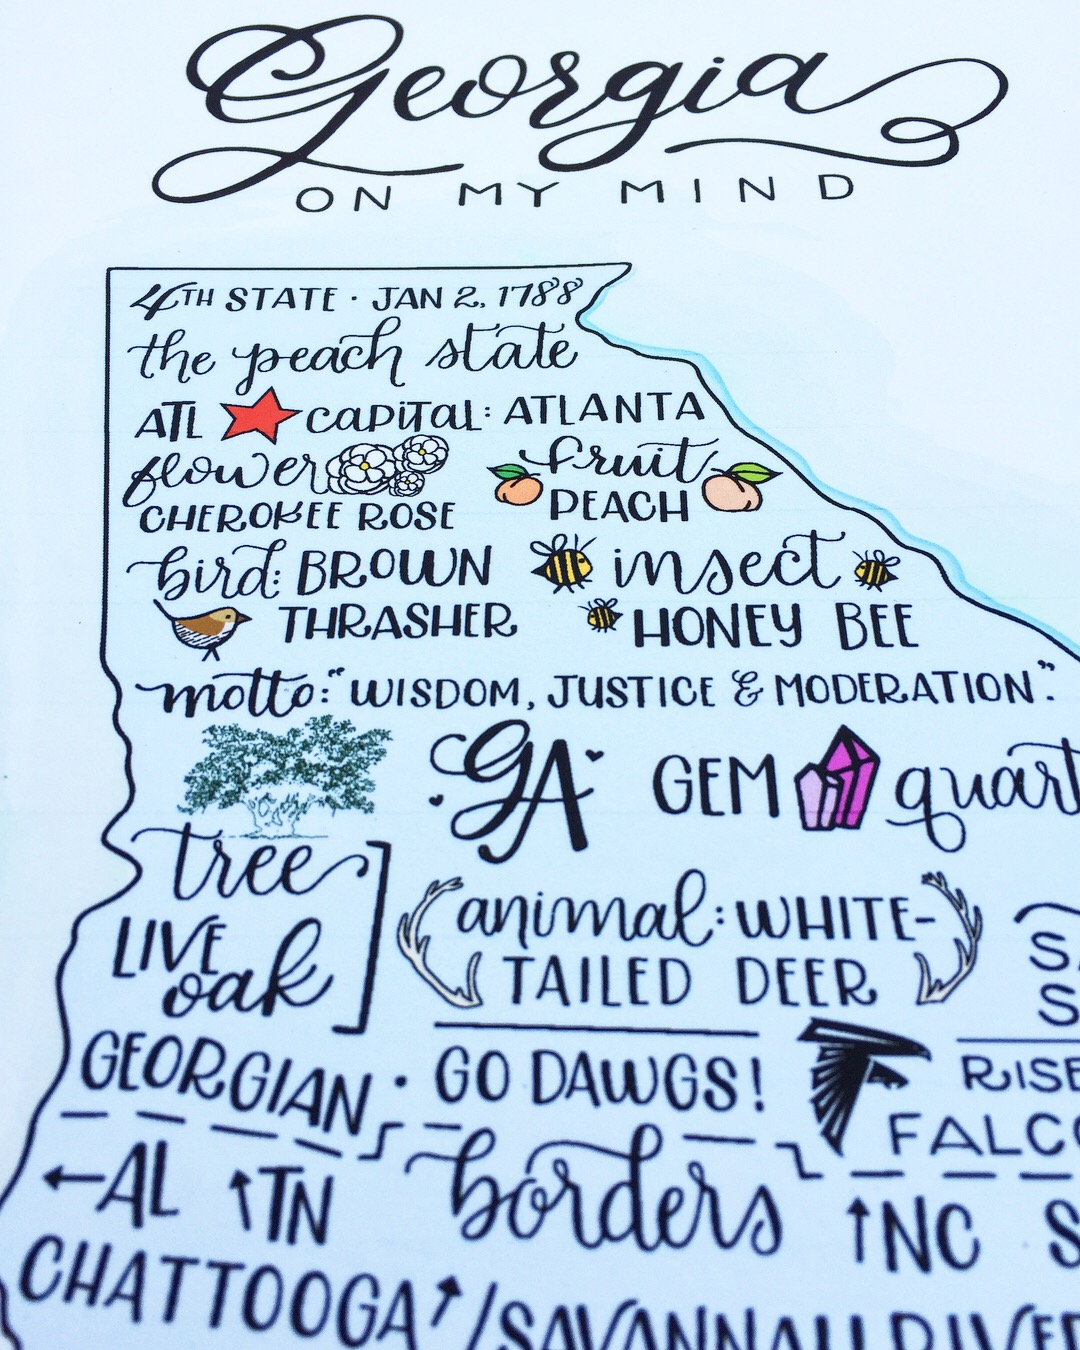 Georgia
ON MY MIND
4TH STATE · JAN 2, 1788
the peach state
ATL CAPITAL: ATLANTA
flower fruit
CHEROKEE ROSE PEACH
bird: BROWN insect
THRASHER HONEY BEE
motto: "WISDOM, JUSTICE & MODERATION".
GA GEM quart
tree
animal: WHITE-
LIVE
oak TAILED DEER
GEORGIAN · GO DAWGS! RISE
FALCO
borders
←AL ↑TN ↑NC S
CHATTOOGA↗/SAVANNAH RIVER